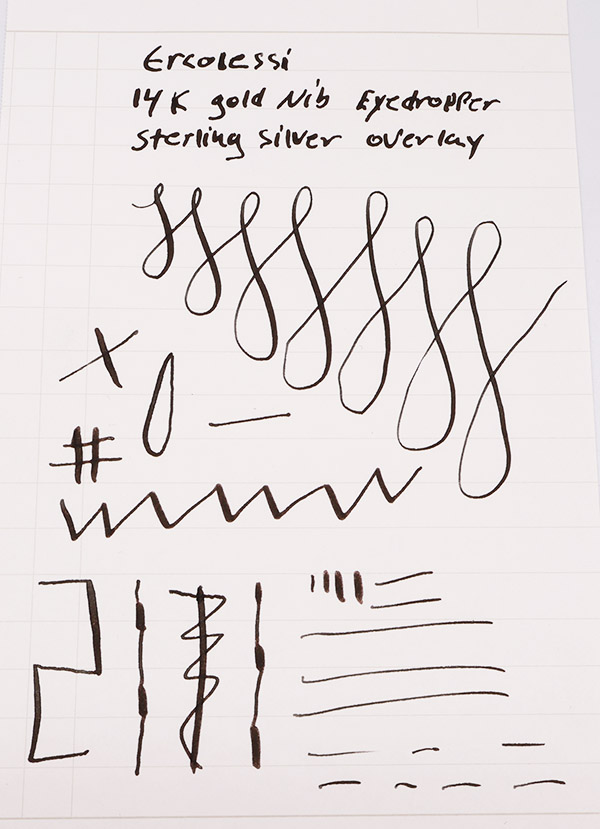 Ercolessi
14K gold Nib Eyedropper
sterling silver overlay